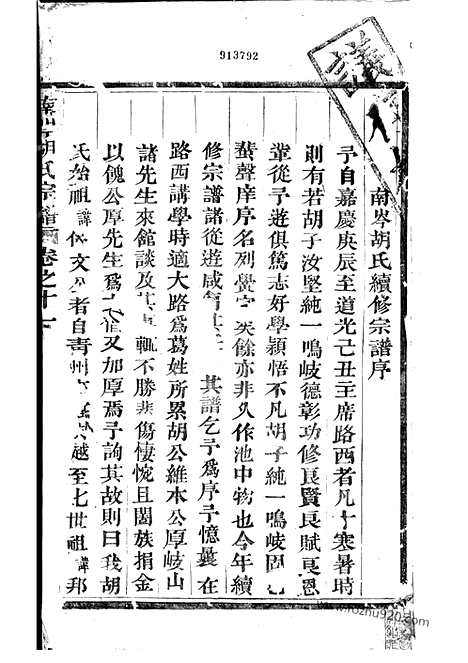 913792
南岑胡氏續修宗譜序
予自嘉慶庚辰至道光己丑主席路西者凡十寒暑時
則有若胡子汝堅純一鳴岐德彰功修良賢良賦良恩
輩從予遊俱篤志好學穎悟不凡胡子純一鳴岐固已
蜚聲庠序名列黌宮 餘亦非久作池中物也今年續
修宗譜諸從遊咸 其譜乞予爲序予憶曩在
路西講學時適大路爲葛姓所累胡公維本公厚岐山
諸先生來館談及其 輒不勝悲傷悽惋且闔族捐金
以餽公厚先生爲 又加厚焉予詢其故則曰我胡
氏始祖諱 文 者自青州 越至七世祖諱邦
胡氏宗譜 卷之十